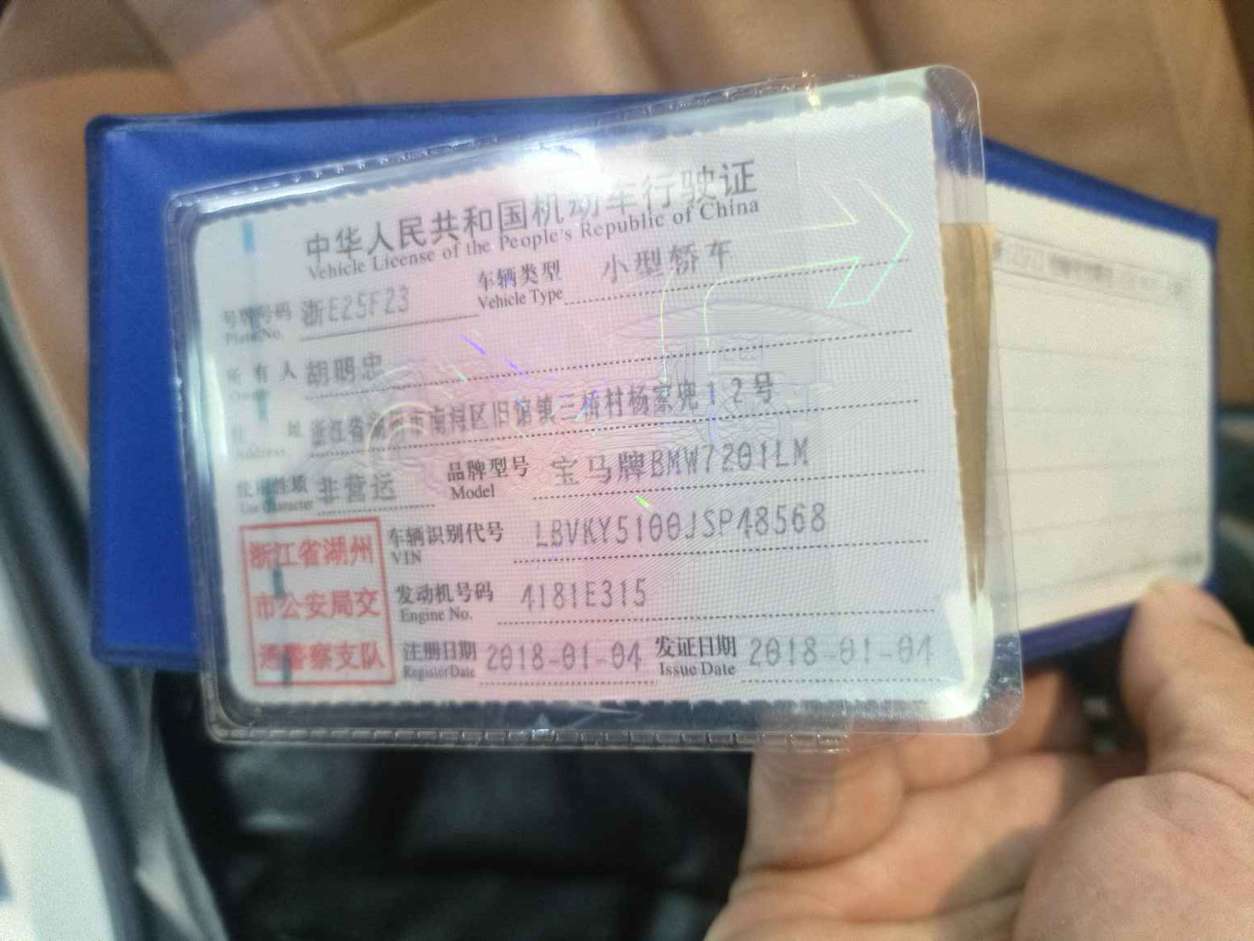 中华人民共和国机动车行驶证
Vehicle License of the People's Republic of China
号牌号码 浙E25F23 车辆类型 小型轿车
Plate No. Vehicle Type
所有人 胡明忠
Owner
住址 浙江省湖州市南浔区旧馆镇三桥村杨家兜12号
Address
使用性质 非营运 品牌型号 宝马牌BMW7201LM
Use Character Model
浙江省湖州
市公安局交
通警察支队
车辆识别代号 LBVKY5100JSP48568
VIN
发动机号码 4181E315
Engine No.
注册日期 2018-01-04 发证日期 2018-01-04
Register Date Issue Date